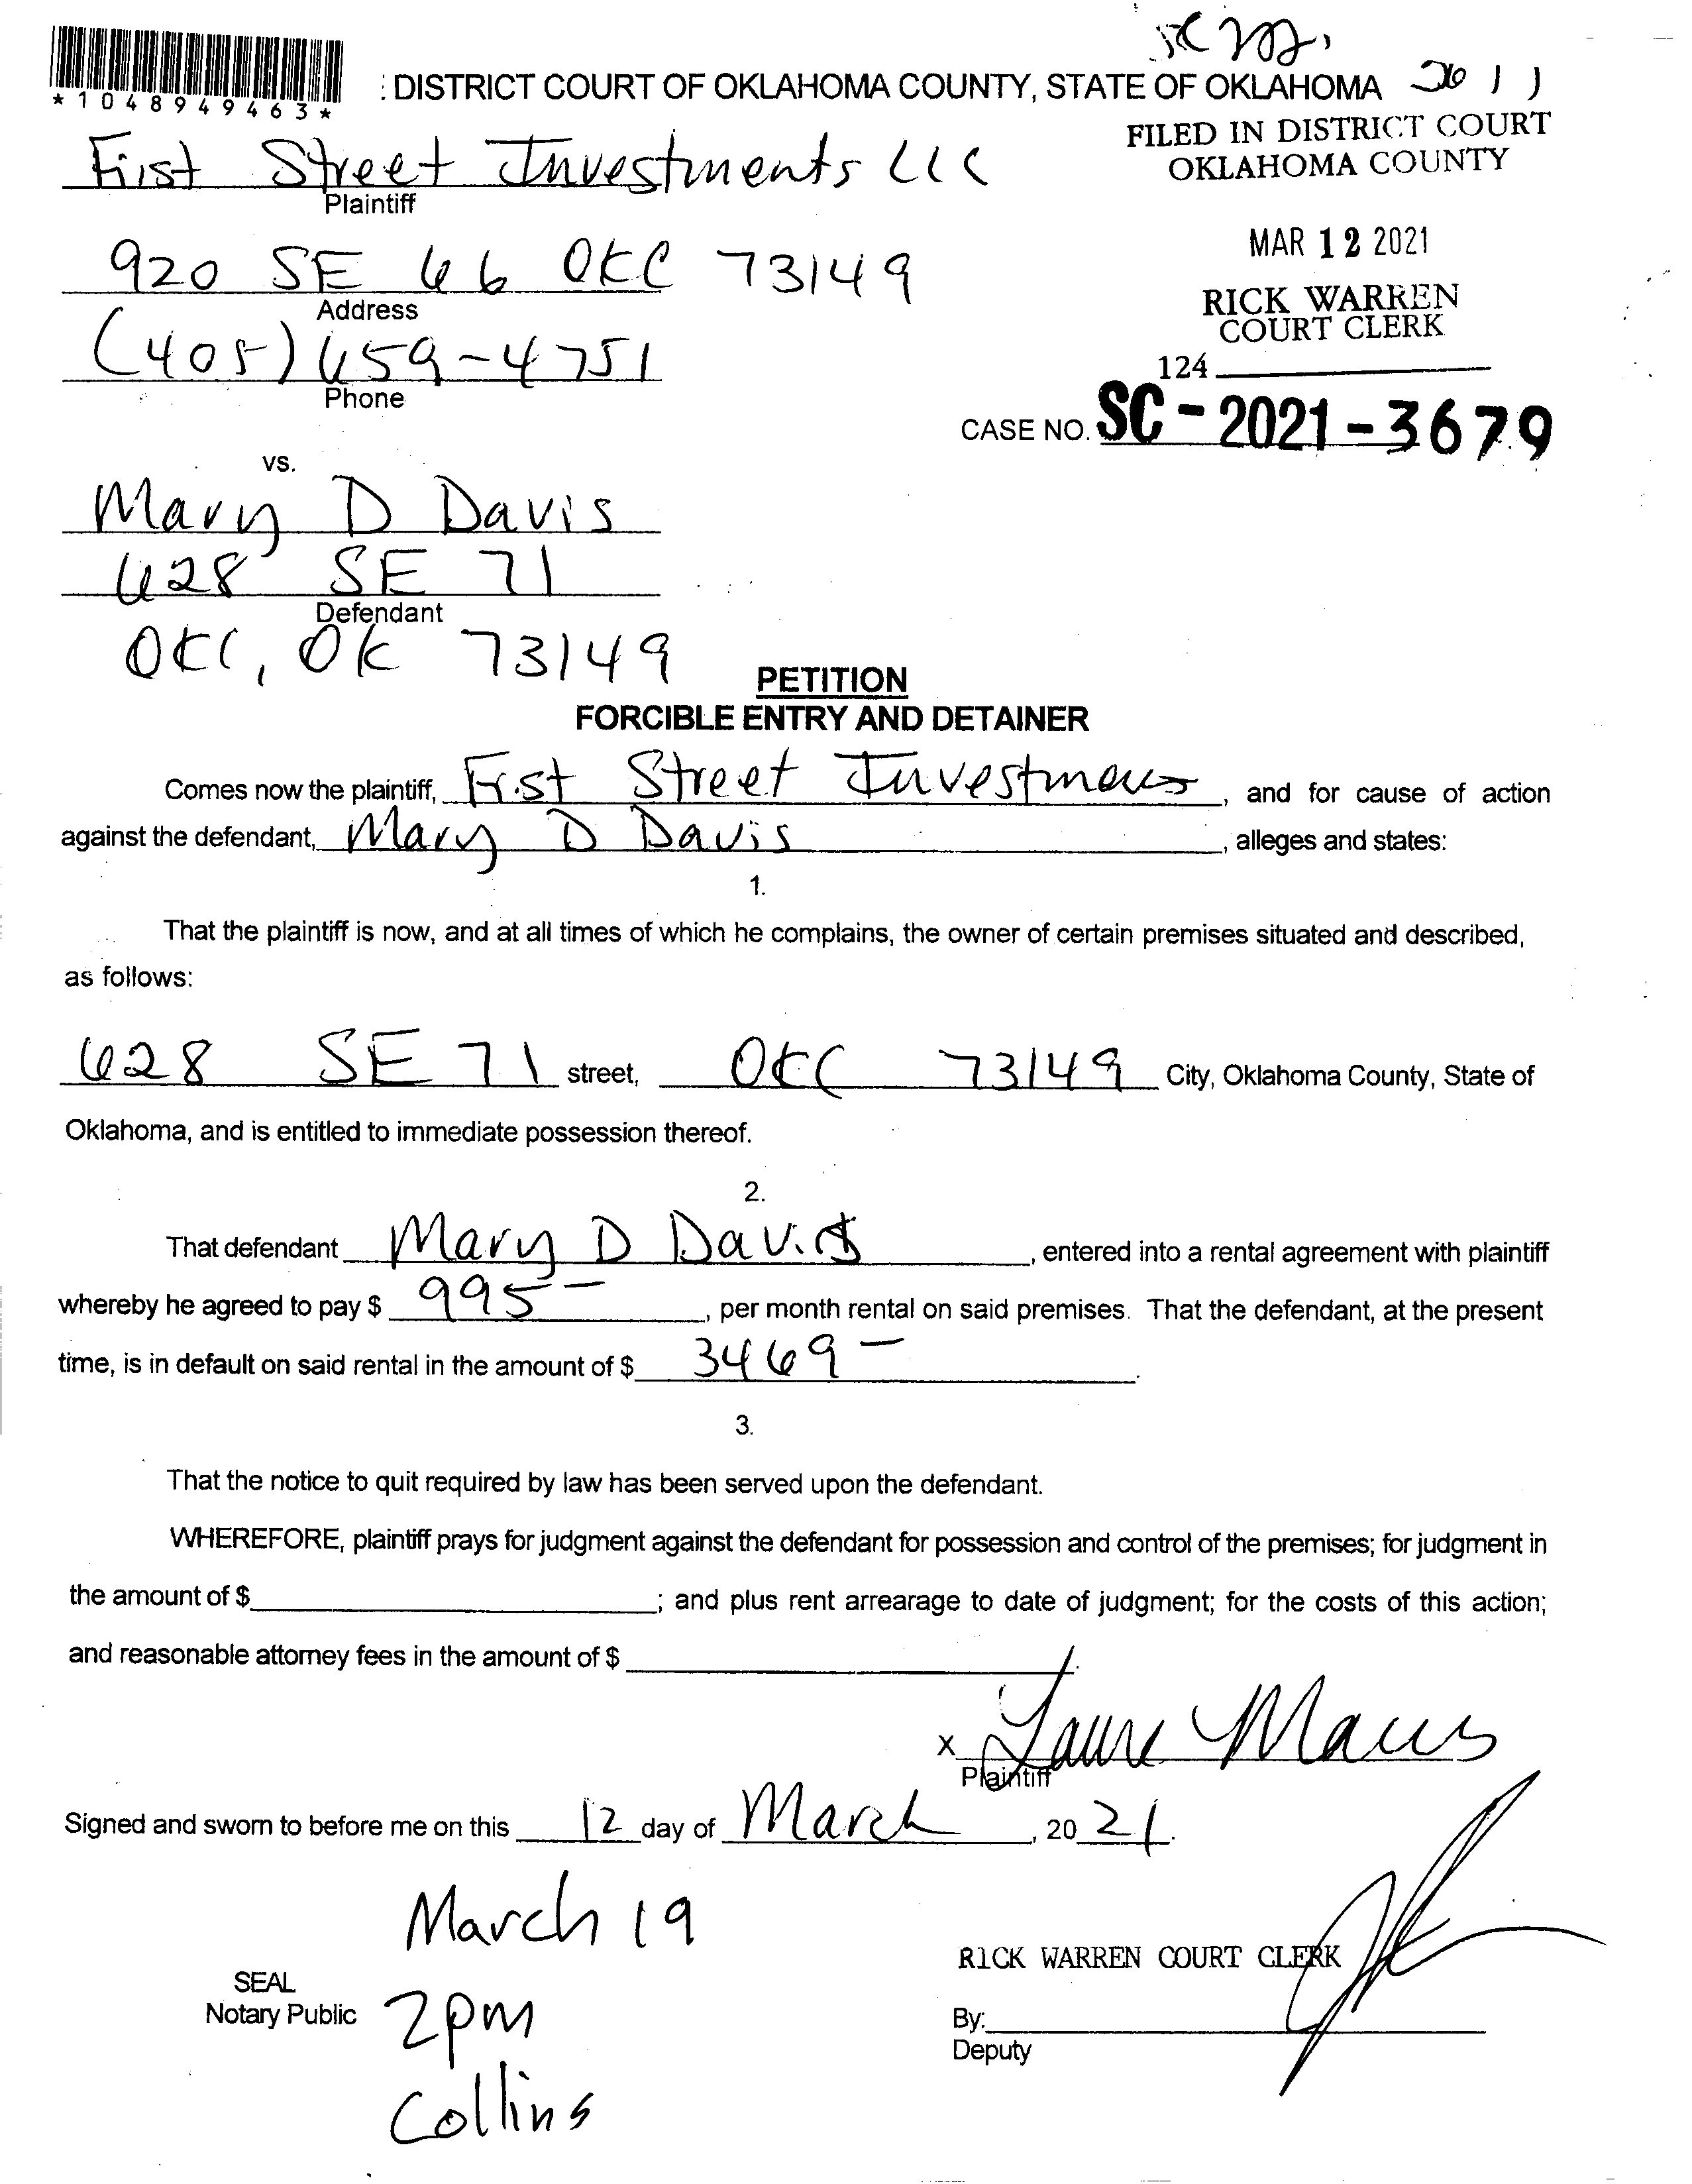 *1048949463*
DISTRICT COURT OF OKLAHOMA COUNTY, STATE OF OKLAHOMA
FILED IN DISTRICT COURT
OKLAHOMA COUNTY
First Street Investments LLC
Plaintiff
MAR 12 2021
920 SE 66 OKC 73149
Address
RICK WARREN
COURT CLERK
(405) 659-4751
Phone
124
CASE NO. SC-2021-3679
vs.
Mary D Davis
628 SE 71
Defendant
OKC, OK 73149
PETITION
FORCIBLE ENTRY AND DETAINER
Comes now the plaintiff, First Street Investments, and for cause of action
against the defendant, Mary D Davis, alleges and states:
1.
That the plaintiff is now, and at all times of which he complains, the owner of certain premises situated and described,
as follows:
628 SE 71 street, OKC 73149 City, Oklahoma County, State of
Oklahoma, and is entitled to immediate possession thereof.
2.
That defendant Mary D Davis, entered into a rental agreement with plaintiff
whereby he agreed to pay $ 995-, per month rental on said premises. That the defendant, at the present
time, is in default on said rental in the amount of $ 3469-.
3.
That the notice to quit required by law has been served upon the defendant.
WHEREFORE, plaintiff prays for judgment against the defendant for possession and control of the premises; for judgment in
the amount of $ ; and plus rent arrearage to date of judgment; for the costs of this action;
and reasonable attorney fees in the amount of $
X
Plaintiff
Signed and sworn to before me on this 12 day of March, 2021.
March 19
RICK WARREN COURT CLERK
SEAL
Notary Public
2pm
By:
Deputy
Collins